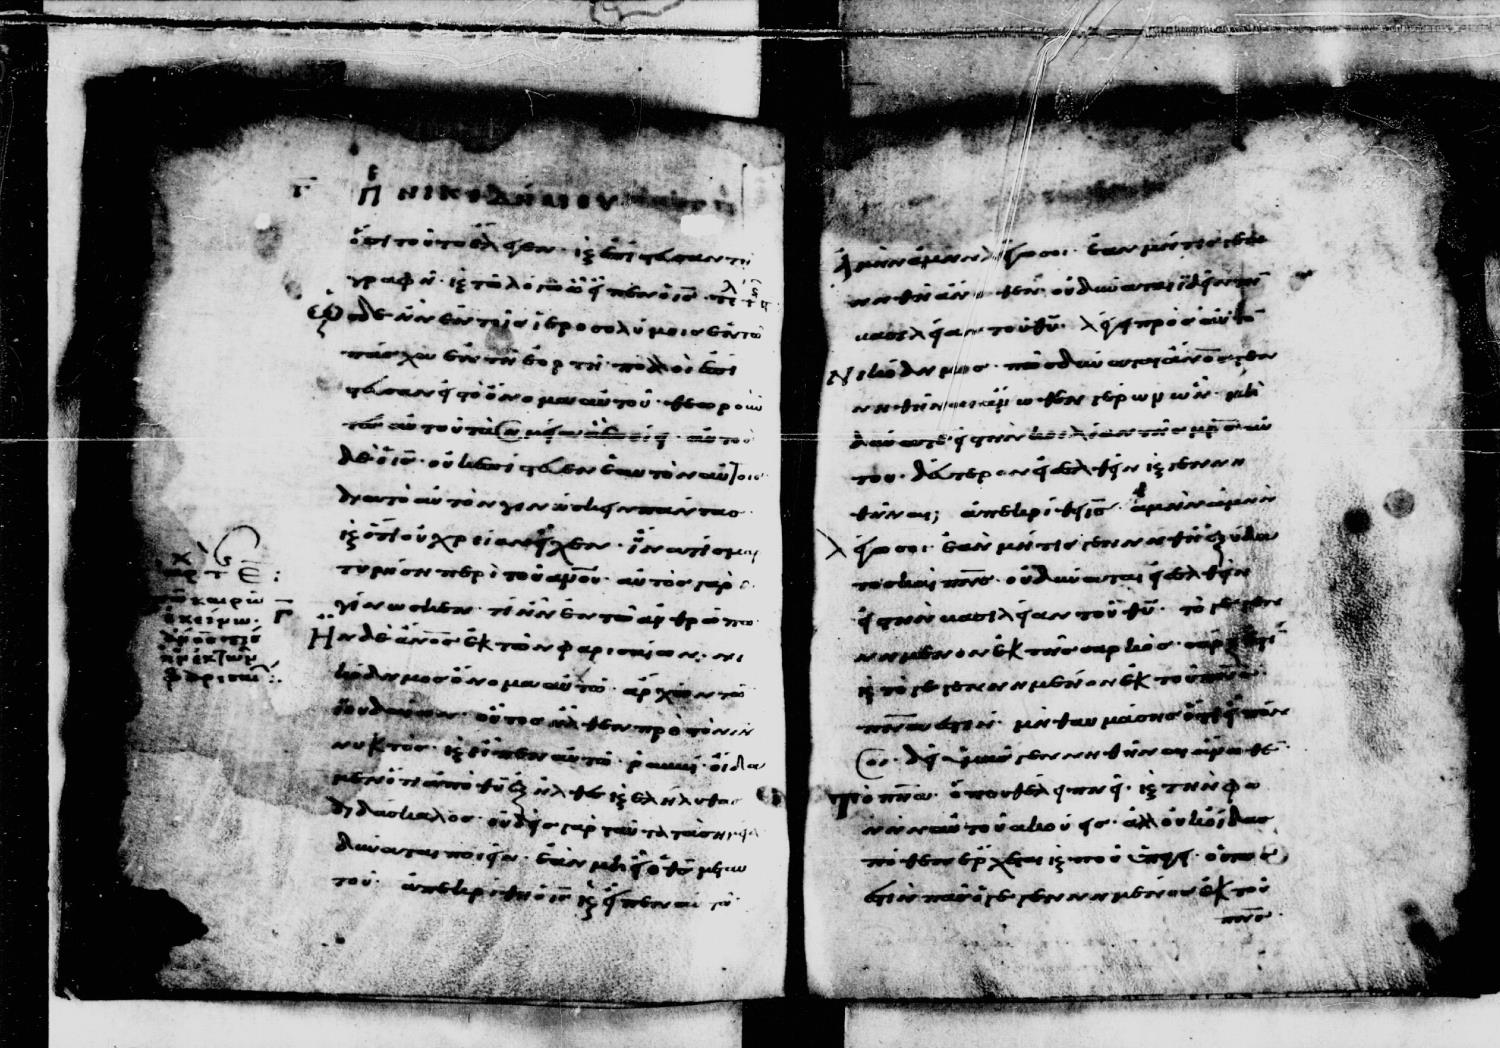 Γ Π ΝΙΚΟΔΗΜΟΥ
ὅτι τοῦτο ἔλεγεν· κ̀ ἐπίστευσαν τῆ
γραφῆ· κ̀ τῶ λόγω ὧ εἶπεν ὁ ις̅·
ὡς δὲ ἦν ἐν τοῖς ἱεροσολύμοις ἐν τῶ
πάσχα ἐν τῆ ἑορτῆ· πολλοὶ ἐπί
στευσαν εἰς τὸ ὄνομα αὐτοῦ· θεωροῦν
τες αὐτοῦ τὰ σημεῖα ἃ ἐποίει· αὐτὸς
δὲ ὁ ις̅· οὐκ ἐπίστευεν ἑαυτὸν αὐτοῖς
διὰ τὸ αὐτὸν γινώσκειν πάντας·
κ̀ ὅτι οὐ χρείαν εἶχεν· ἵνα τὶς μαρ
τυρήση περὶ τοῦ ανου̅· αὐτὸς γὰρ ἐ
γίνωσκεν· τί ἦν ἐν τῶ ἀνθρώπω·
Ἦν δὲ ανος̅ ἐκ τῶν φαρισαίων· νι
κόδημος ὄνομα αὐτῶ· ἄρχων τῶν
ἰουδαίων· οὗτος ἦλθεν πρὸς τὸν ιν̅
νυκτός· κ̀ εἶπεν αὐτῶ· ραββί· οἴδα
μεν ὅτι ἀπὸ θυ̅ ἐλήλυθας
διδάσκαλος· οὐδεὶς γὰρ ταῦτα τὰ σημεῖα
δύναται ποιεῖν· ἐὰν μὴ ὁ θς̅ μετ αὐ
τοῦ· ἀπεκρίθη ὁ ις̅ κ̀ εἶπεν αὐτῶ·
τῶ καιρῶ
ἐκείνω·
φαρισαί
ἀμὴν ἀμὴν λέγω σοι· ἐὰν μή τις γεν
νηθῆ ἄνωθεν· οὐ δύναται ἰδεῖν τὴν
βασιλείαν τοῦ θυ̅· λέγει πρὸς αὐτὸν
Νικόδημος· πῶς δύναται ανος̅ γεν
νηθῆναι ἄνωθεν γέρων ὤν· μὴ
δύναται εἰς τὴν κοιλίαν τῆς μρς̅ αὐ
τοῦ· δεύτερον εἰσελθεῖν κ̀ γεννη
θῆναι; ἀπεκρίθη ις̅· ἀμὴν ἀμὴν
λέγω σοι· ἐὰν μή τις γεννηθῆ ἐξ ὕδα
τος καὶ πνς̅· οὐ δύναται εἰσελθεῖν
εἰς τὴν βασιλείαν τοῦ θυ̅· τὸ γεγεν
νημένον ἐκ τῆς σαρκός· σάρξ ἐστι
κ̀ τὸ γεγεννημένον ἐκ τοῦ πνς̅·
πνα̅ ἐστιν· μὴ θαυμάσης ὅτι εἶπόν
σοι· δεῖ ὑμᾶς γεννηθῆναι ἄνωθεν·
Τὸ πνα̅· ὅπου θέλει πνεῖ· κ̀ τὴν φω
νὴν αὐτοῦ ἀκούεις· ἀλλ οὐκ οἶδας
πόθεν ἔρχεται κ̀ ποῦ ὑπάγει· οὕτως
ἐστὶν πᾶς ὁ γεγεννημένος ἐκ τοῦ
πνς̅·